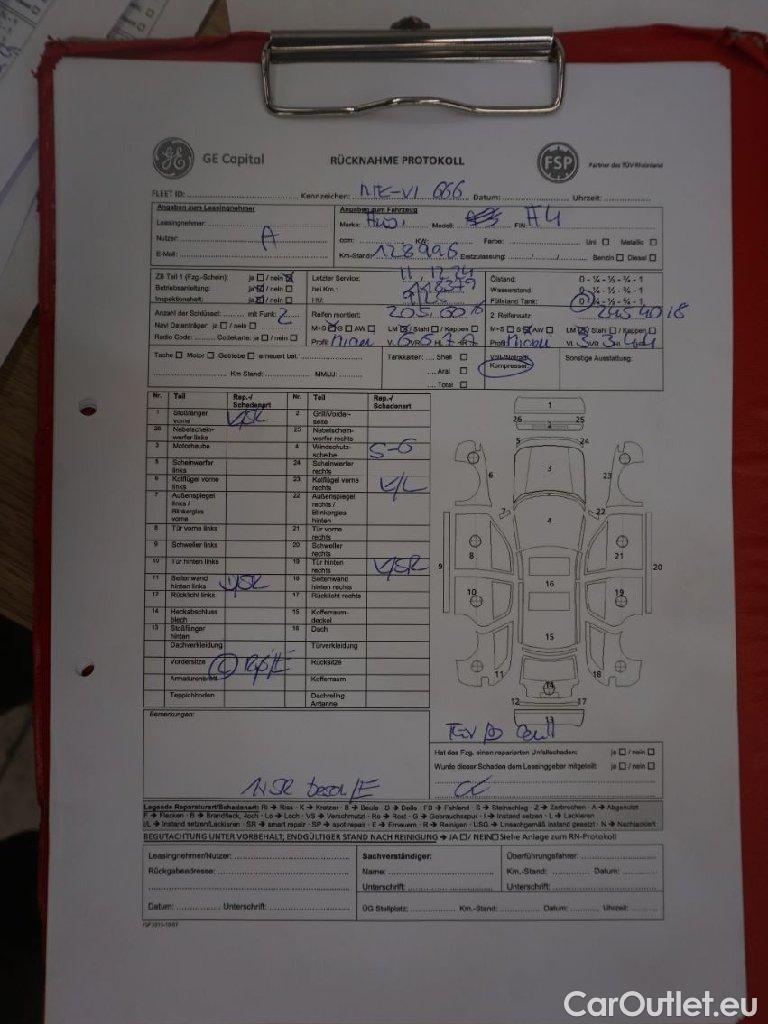 GE Capital RÜCKNAHME PROTOKOLL FSP Partner des TÜV Rheinland
FLEET ID: Kennzeichen: 666 Datum: Uhrzeit:
Angaben zum Leasingnehmer Angaben zum Fahrzeug
Leasingnehmer: Marke: Audi Modell: A3 FIN: A4
Nutzer: A ccm: KW: Farbe: Uni Metallic
E-Mail: Km-Stand: 128996 Erstzulassung: Benzin Diesel
ZB Teil 1 (Fzg.-Schein): ja / nein Letzter Service: Ölstand: 0 - ¼ - ½ - ¾ - 1
Betriebsanleitung: ja / nein bei Km.: Wasserstand: 0 - ¼ - ½ - ¾ - 1
Inspektionsheft: ja / nein HU: Füllstand Tank: 0 - ¼ - ½ - ¾ - 1
Anzahl der Schlüssel: mit Funk: 2 Reifen montiert: 205 60 16 2 Reifensatz: 245 40 18
Navi Datenträger ja / nein M+S G AW LM / Stahl / Kappen M+S G AW LM / Stahl / Kappen
Radio Code: Codekarte: ja / nein Profil VL VR HL HR Profil VL VR
Tacho Motor Getriebe erneuert bei: Tankkarten: Shell Sonstige Ausstattung:
Km Stand: MM/JJ: Aral Kompressor
Total
Nr. Teil Rep.-/ Schadenart Nr. Teil Rep.-/ Schadenart
1 Stoßfänger vorne K/SR 2 Grill/Vorderseite
26 Nebelscheinwerfer links 25 Nebelscheinwerfer rechts
3 Motorhaube 4 Windschutzscheibe S-G
5 Scheinwerfer links 24 Scheinwerfer rechts
6 Kotflügel vorne links 23 Kotflügel vorne rechts K/L
7 Außenspiegel links / Blinkerglas vorne 22 Außenspiegel rechts / Blinkerglas hinten
8 Tür vorne links 21 Tür vorne rechts
9 Schweller links 20 Schweller rechts
10 Tür hinten links 19 Tür hinten rechts K/SR
11 Seitenwand hinten links K/SR 18 Seitenwand hinten rechts
12 Rücklicht links 17 Rücklicht rechts
14 Heckabschlussblech 15 Kofferraumdeckel
13 Stoßfänger hinten 16 Dach
Dachverkleidung Türverkleidung
Vordersitze Rücksitze
Armaturenbrett Kofferraum
Teppichboden Dachreling Antenne
1
26 25
2
5 24
6 3 23
7 4 22
8 21
9 20
10 16 19
15
11 18
14
12 17
13
Bemerkungen:
Hat das Fzg. einen reparierten Unfallschaden: ja / nein
Wurde dieser Schaden dem Leasinggeber mitgeteilt ja / nein
Legende Reparaturart/Schadenart: RI → Riss - K → Kratzer - B → Beule - D → Delle - FD → Fehlend - S → Steinschlag - Z → Zerbrochen - A → Abgenutzt
F → Flecken - B → Brandfleck, Loch - Lo → Loch - VS → Verschmutzt - Ro → Rost - G → Gebrauchsspur - I → Instand setzen - L → Lackieren
I/L → Instand setzen/Lackieren - SR → smart repair - SP → spot repair - E → Erneuern - R → Reinigen - USG → Unsachgemäß instand gesetzt - N → Nachlackiert
BEGUTACHTUNG UNTER VORBEHALT; ENDGÜLTIGER STAND NACH REINIGUNG → JA / NEIN Siehe Anlage zum RN-Protokoll
Leasingnehmer/Nutzer: Sachverständiger: Überführungsfahrer:
Rückgabeadresse: Name: Km.-Stand: Datum:
Unterschrift: Unterschrift:
Datum: Unterschrift: ÜG Stellplatz: Km.-Stand: Datum: Uhrzeit:
CarOutlet.eu